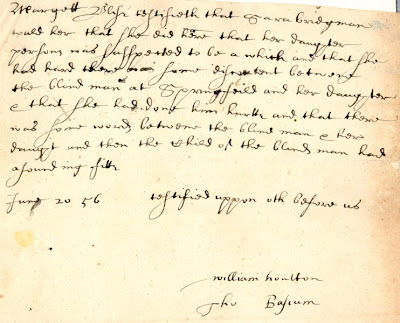 Margett Blise testifieth that Sara bridgman
tould her that she did here that her daughter
persons was susspected to be a which and that she
had hard there was some discontent betweene
the blind man at Springfeild and her daughter
& that she had done him hurtt and that there
was some words betweene the blind man & her
daught and then the Child of the blind man had
a sounding fitt
June 20 56 testified uppon oth before us
william houlton
Tho Bascum